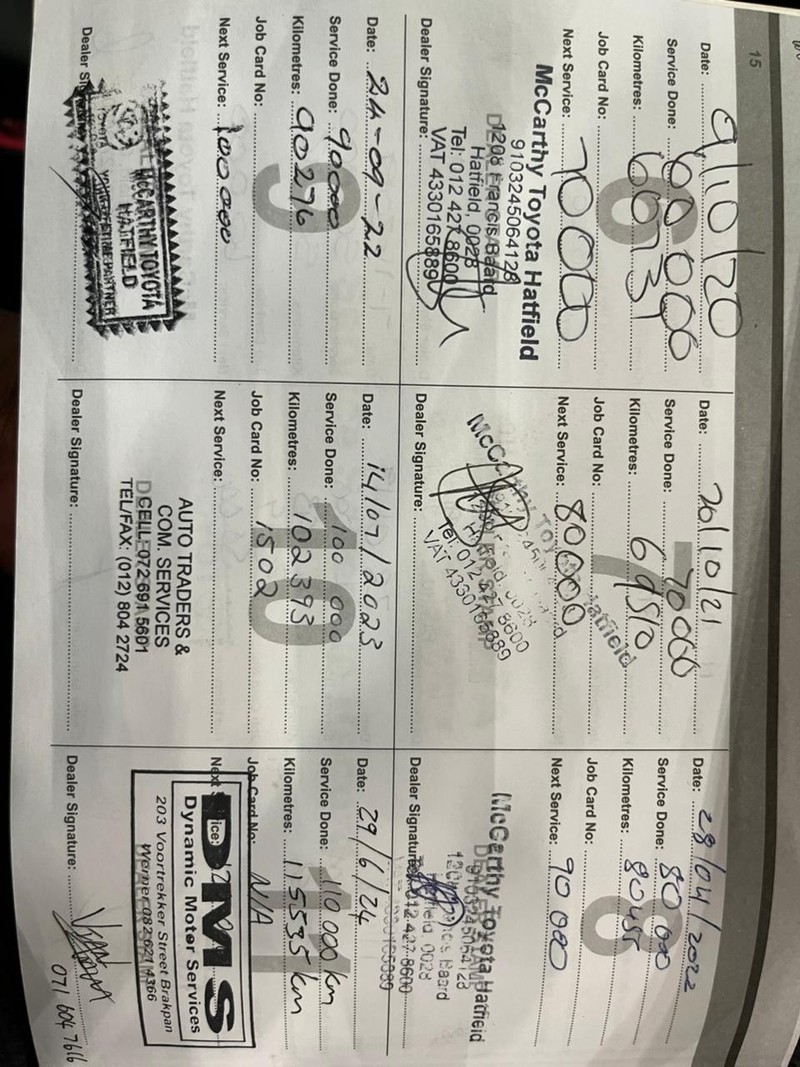 15
6
Date: 9/10/20
Service Done: 60 000
Kilometres: 60731
Job Card No:
Next Service: 70000
McCarthy Toyota Hatfield
9103245064128
1208 Francis Baard
Hatfield, 0028
Tel: 012 427 8600
VAT 4330165889
Dealer Signature:
7
Date: 20/10/21
Service Done: 70 000
Kilometres: 69510
Job Card No:
Next Service: 80000
Hatfield
0028
Tel: 012 427 8600
VAT 4330165889
Dealer Signature:
8
Date: 28/04/2022
Service Done: 80 000
Kilometres: 80455
Job Card No:
Next Service: 90 000
McCarthy Toyota Hatfield
9103245064128
Baard
0028
Tel: 012 427 8600
Dealer Signature:
9
Date: 24-09-22
Service Done: 90000
Kilometres: 90276
Job Card No:
Next Service: 100 000
McCARTHY TOYOTA
HATFIELD
YOUR LIFETIME PARTNER
Dealer
10
Date: 14/07/2023
Service Done: 100 000
Kilometres: 102393
Job Card No: 1502
Next Service:
AUTO TRADERS &
COM. SERVICES
CELL: 072 691 5601
TEL/FAX: (012) 804 2724
Dealer Signature:
11
Date: 29/6/24
Service Done: 110 000 km
Kilometres: 115535 km
Job Card No: N/A
Next
DMS
Dynamic Motor Services
203 Voortrekker Street Brakpan
Werner 082 621 4366
Dealer Signature:
071 604 7616